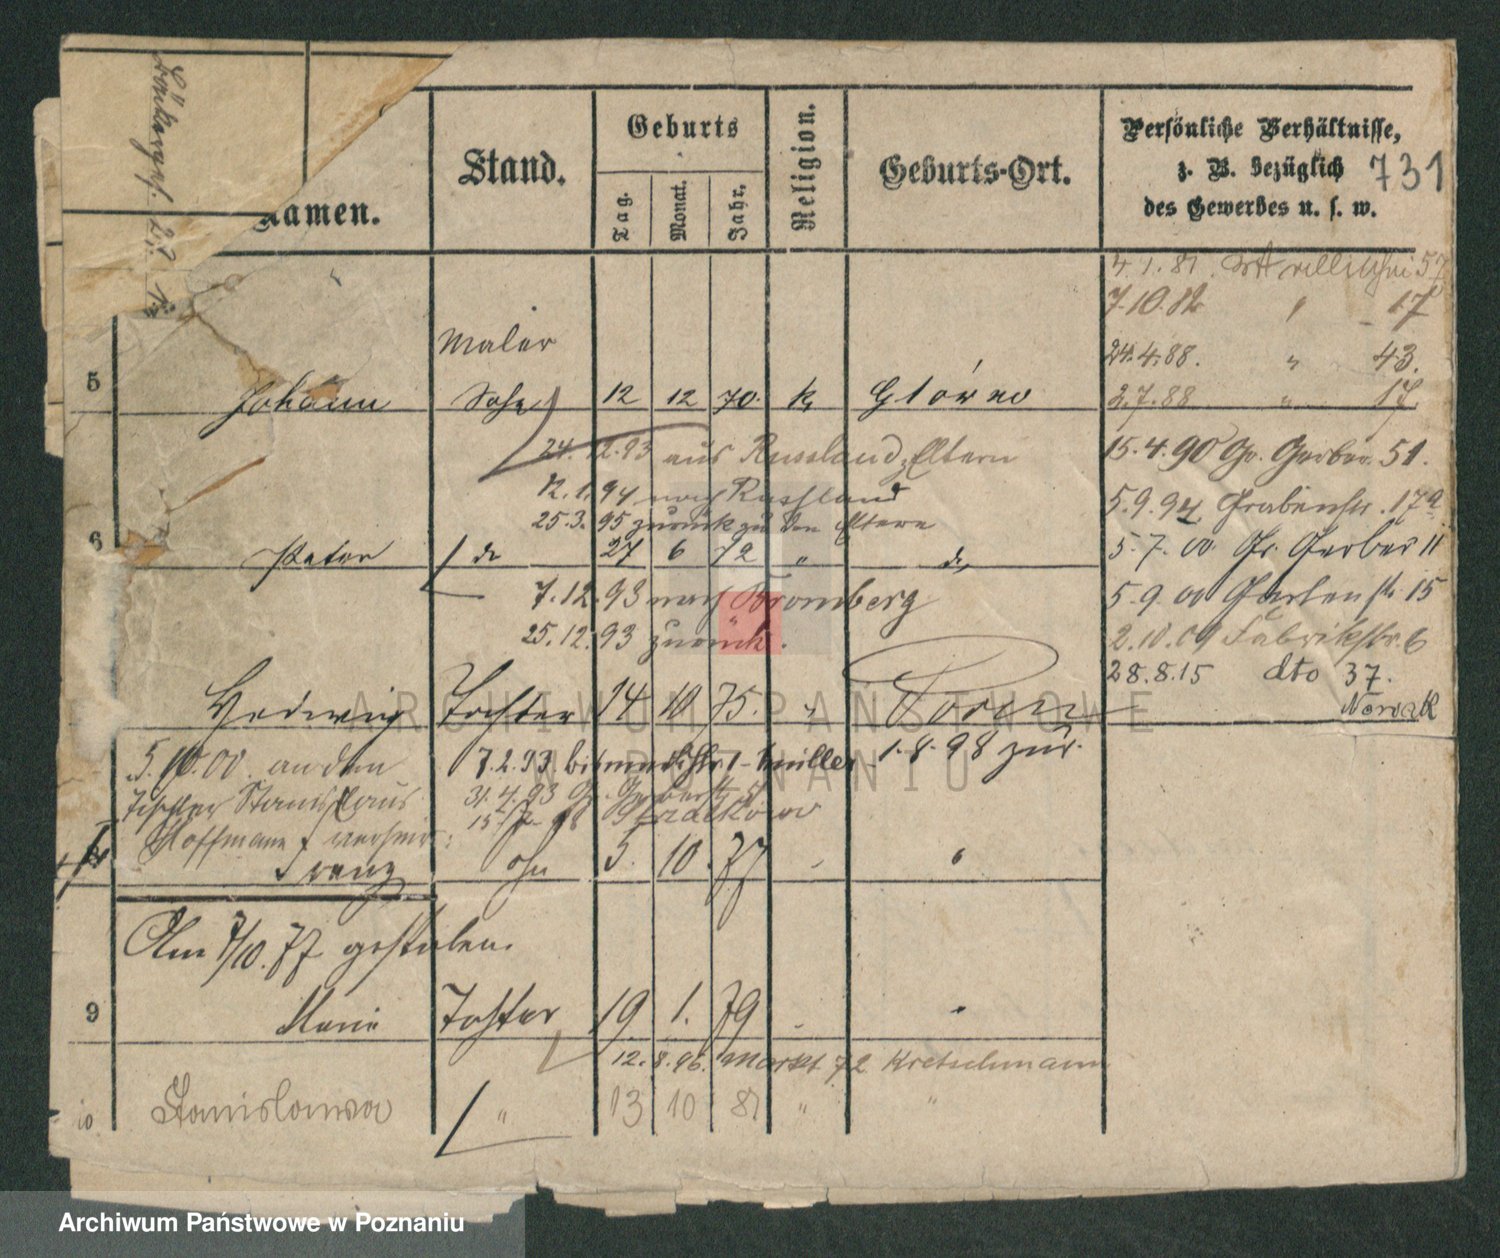 Namen.
Stand.
Geburts
Tag.
Monat.
Jahr.
Religion.
Geburts-Ort.
Persönliche Verhältnisse,
z. B. bezüglich
des Gewerbes u. s. w.
731
4.1.81. 57
7.10.82 " 17
24.4.88. " 43.
2.7.88 " 17.
15.4.90 Gr. Gerber. 51.
5.9.94 Grabenstr. 17a
5.7.00 Gr. Gerber 11
5.9.00 Gartenstr. 15
2.10.09 Fabrikstr. 6
28.8.15 dto 37.
Nowak
Maler
5 Johann Sohn 12 12 70. k Glówno
24.12.93 aus Russland z. Eltern
12.1.94 nach Russland
25.3.95 zurück zu den Eltern
6 Peter do 27 6 72 " do
7.12.93 nach Bromberg
25.12.93 zurück.
Hedwig Tochter 14 10 75. " Posen
5.10.00 an den
Tischler Stanislaus
Hoffmann verheir:
7.2.93 Bismarckstr. 1 Miller 1.8.98 zur.
31.4.93 Gr. Gerberstr. 51
Franz Sohn 5. 10. 77 "
Am 7/10.77 gestorben.
9 Marie Tochter 19 1. 79 "
12.8.96. Markt 72 Kretschmann
10 Stanislawa " 13 10 81 " "
ARCHIWUM PAŃSTWOWE
W POZNANIU
Archiwum Państwowe w Poznaniu